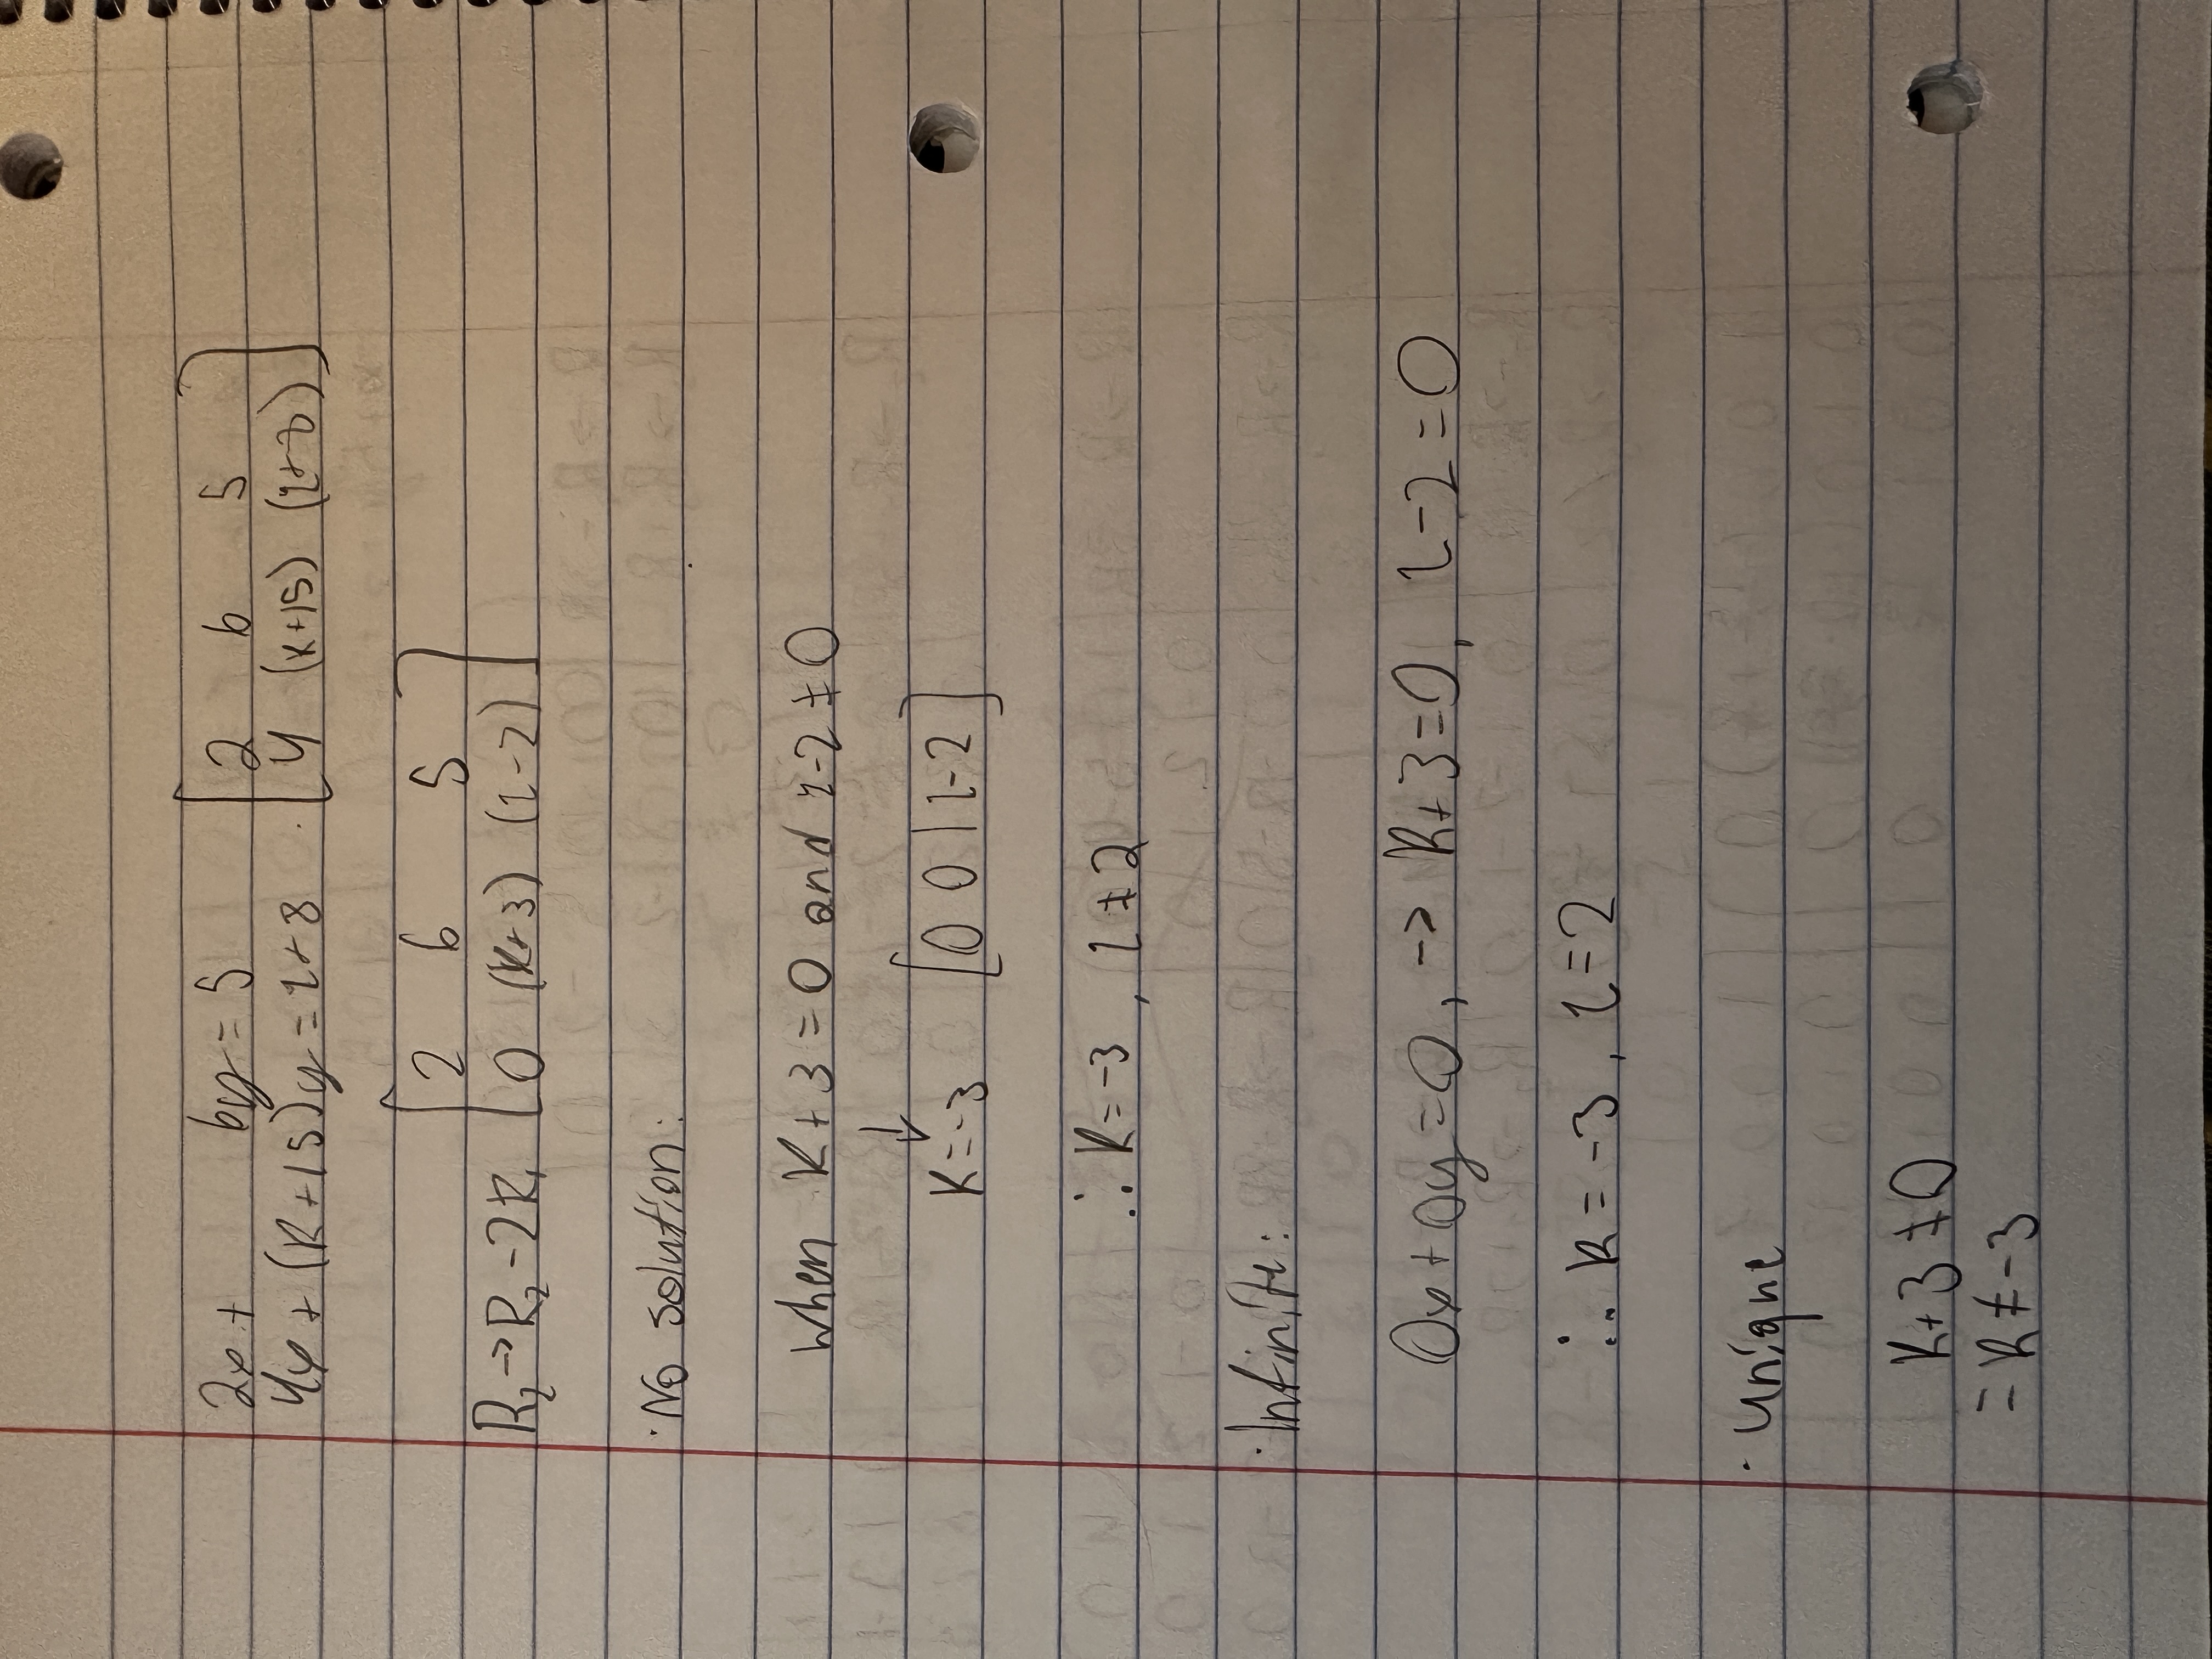 2x + 6y = 5 [ 2 6 5
4x + (k+15)y = l+8 4 (k+15) (l+8) ]
[ 2 6 5
R₂→R₂-2R₁ 0 (k+3) (l-2) ]
· No solution:
when k+3=0 and l-2≠0
↓
k=-3 [0 0 | l-2]
∴ k=-3, l≠2
· Infinite:
0x+0y=0, → k+3=0, l-2=0
∴ k=-3, l=2
· Unique
k+3≠0
= k≠-3